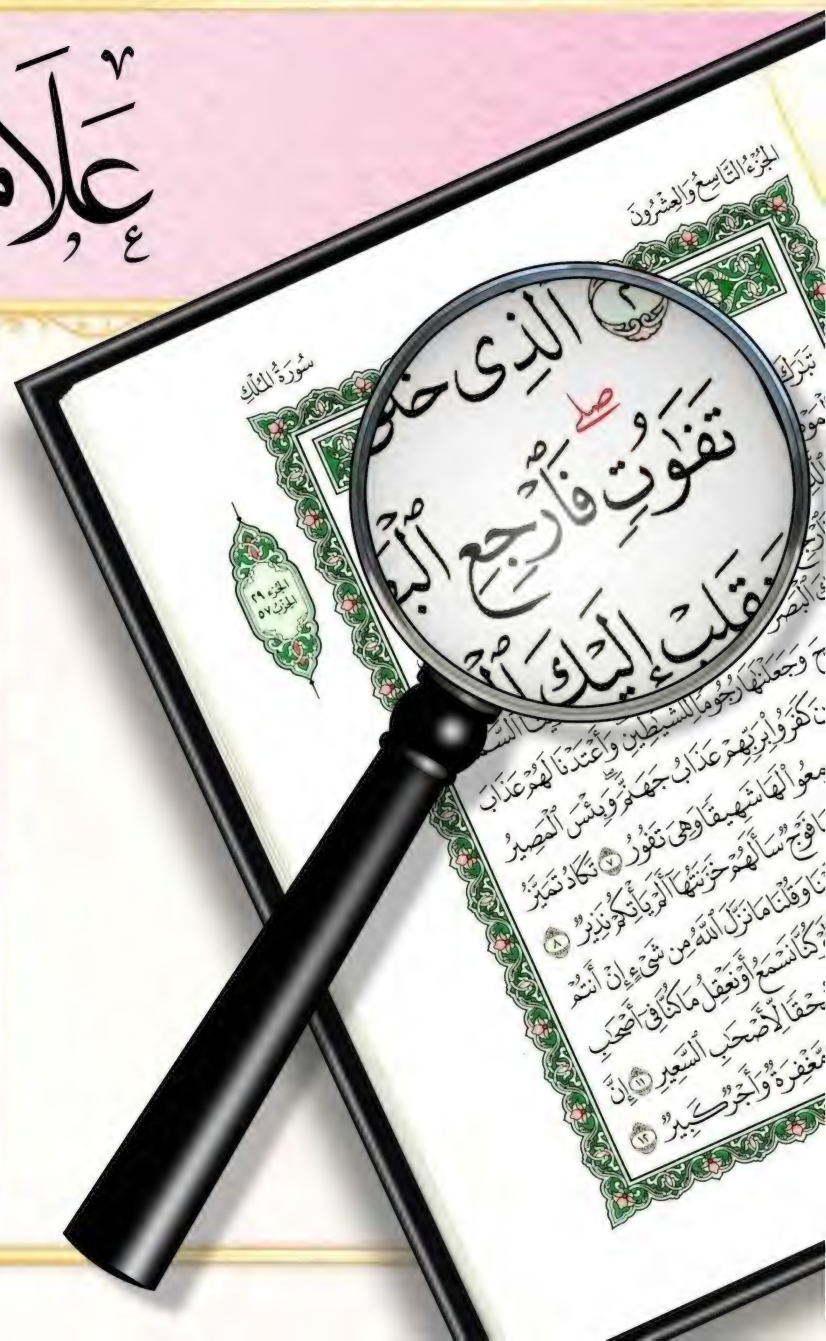 عَلَا
الجُزْءُ التَّاسِعُ وَالعِشْرُونَ
سُورَةُ المُلْكِ
الَّذِى خَلَقَ
صلے
تَفَٰوُتٍ فَٱرْجِعِ ٱلْبَ
يَنقَلِبْ إِلَيْكَ ٱلْ
الجزء ٢٩
الحزب ٥٧
تَبَٰرَكَ
ٱلْبَصَرَ
وَجَعَلْنَٰهَا رُجُومًا لِّلشَّيَٰطِينِ وَأَعْتَدْنَا لَهُمْ عَذَابَ
كَفَرُوا۟ بِرَبِّهِمْ عَذَابُ جَهَنَّمَ وَبِئْسَ ٱلْمَصِيرُ
سَمِعُوا۟ لَهَا شَهِيقًا وَهِىَ تَفُورُ ٧ تَكَادُ تَمَيَّزُ
فَوْجٌ سَأَلَهُمْ خَزَنَتُهَآ أَلَمْ يَأْتِكُمْ نَذِيرٌ ٨
وَقُلْنَا مَا نَزَّلَ ٱللَّهُ مِن شَىْءٍ إِنْ أَنتُمْ
كُنَّا نَسْمَعُ أَوْ نَعْقِلُ مَا كُنَّا فِىٓ أَصْحَٰبِ
سُحْقًا لِّأَصْحَٰبِ ٱلسَّعِيرِ ١١ إِنَّ
مَّغْفِرَةٌ وَأَجْرٌ كَبِيرٌ ١٢